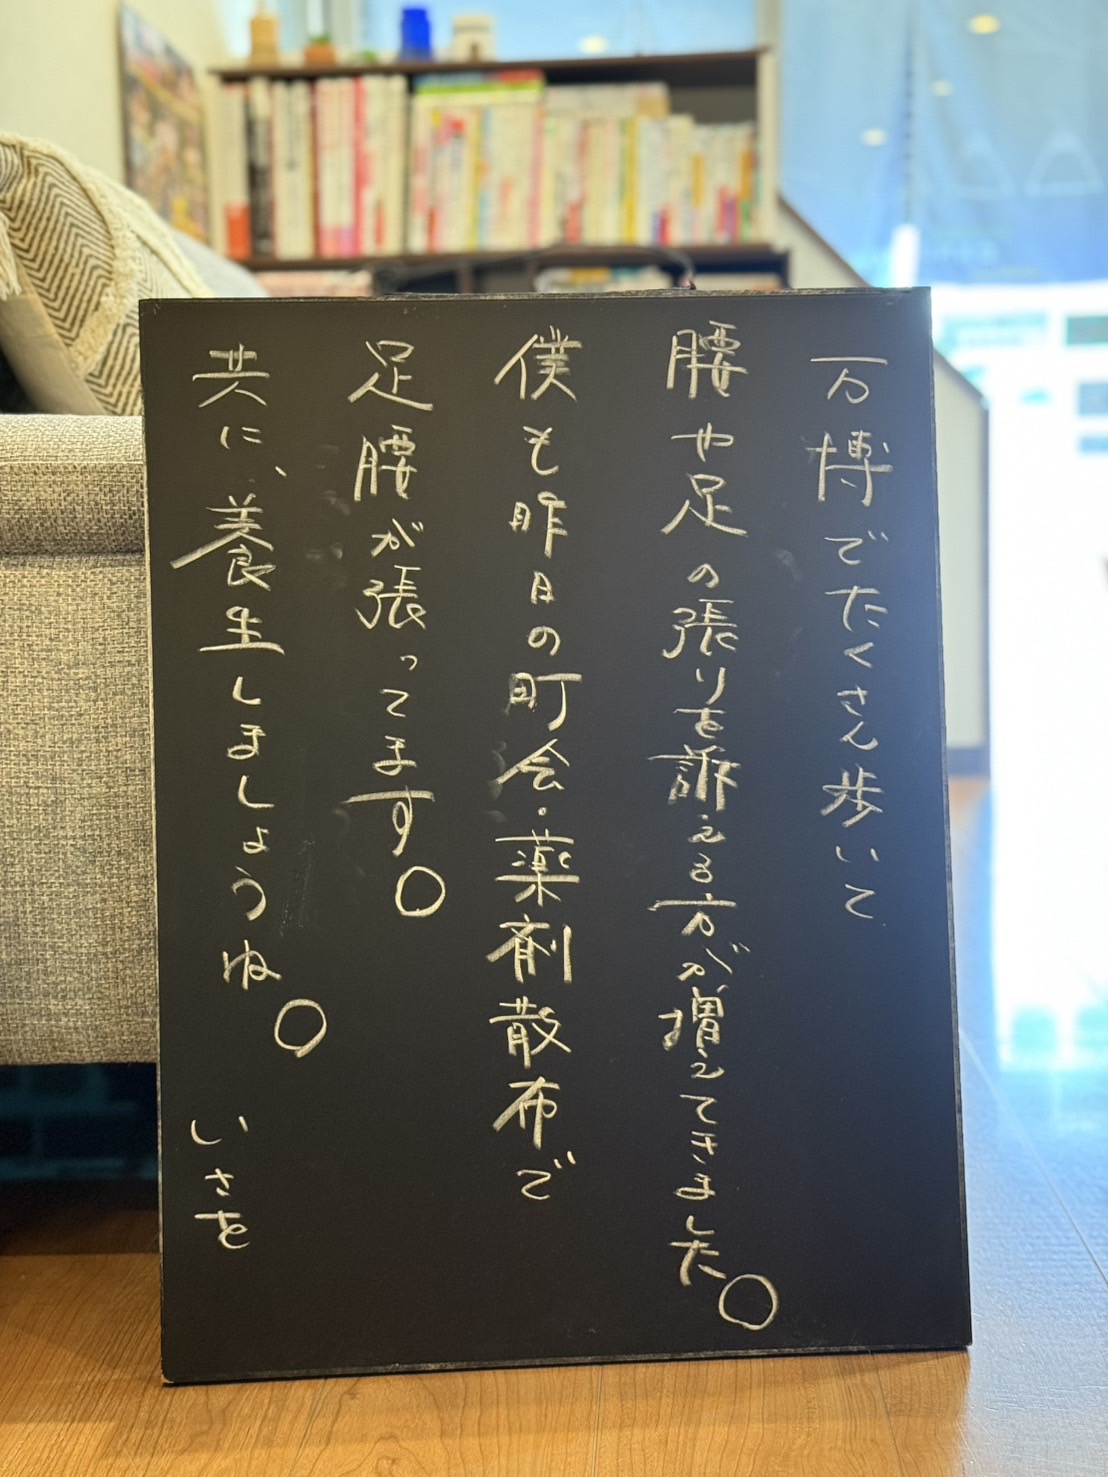 万博でたくさん歩いて
腰や足の張りを訴える方が増えてきました。
僕も昨日の町会・薬剤散布で
足腰が張ってます。
共に、養生しましょうね。
いさを